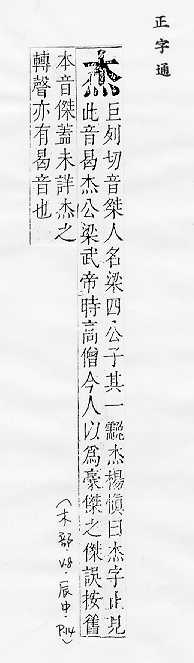 正字通
杰
巨列切音傑人名梁四公子其一杰楊慎曰杰字止見
此音曷杰公梁武帝時高僧今人以爲豪傑之傑誤按舊
本音傑蓋未詳杰之
轉聲亦有曷音也
(木部 V8.辰中.P14)